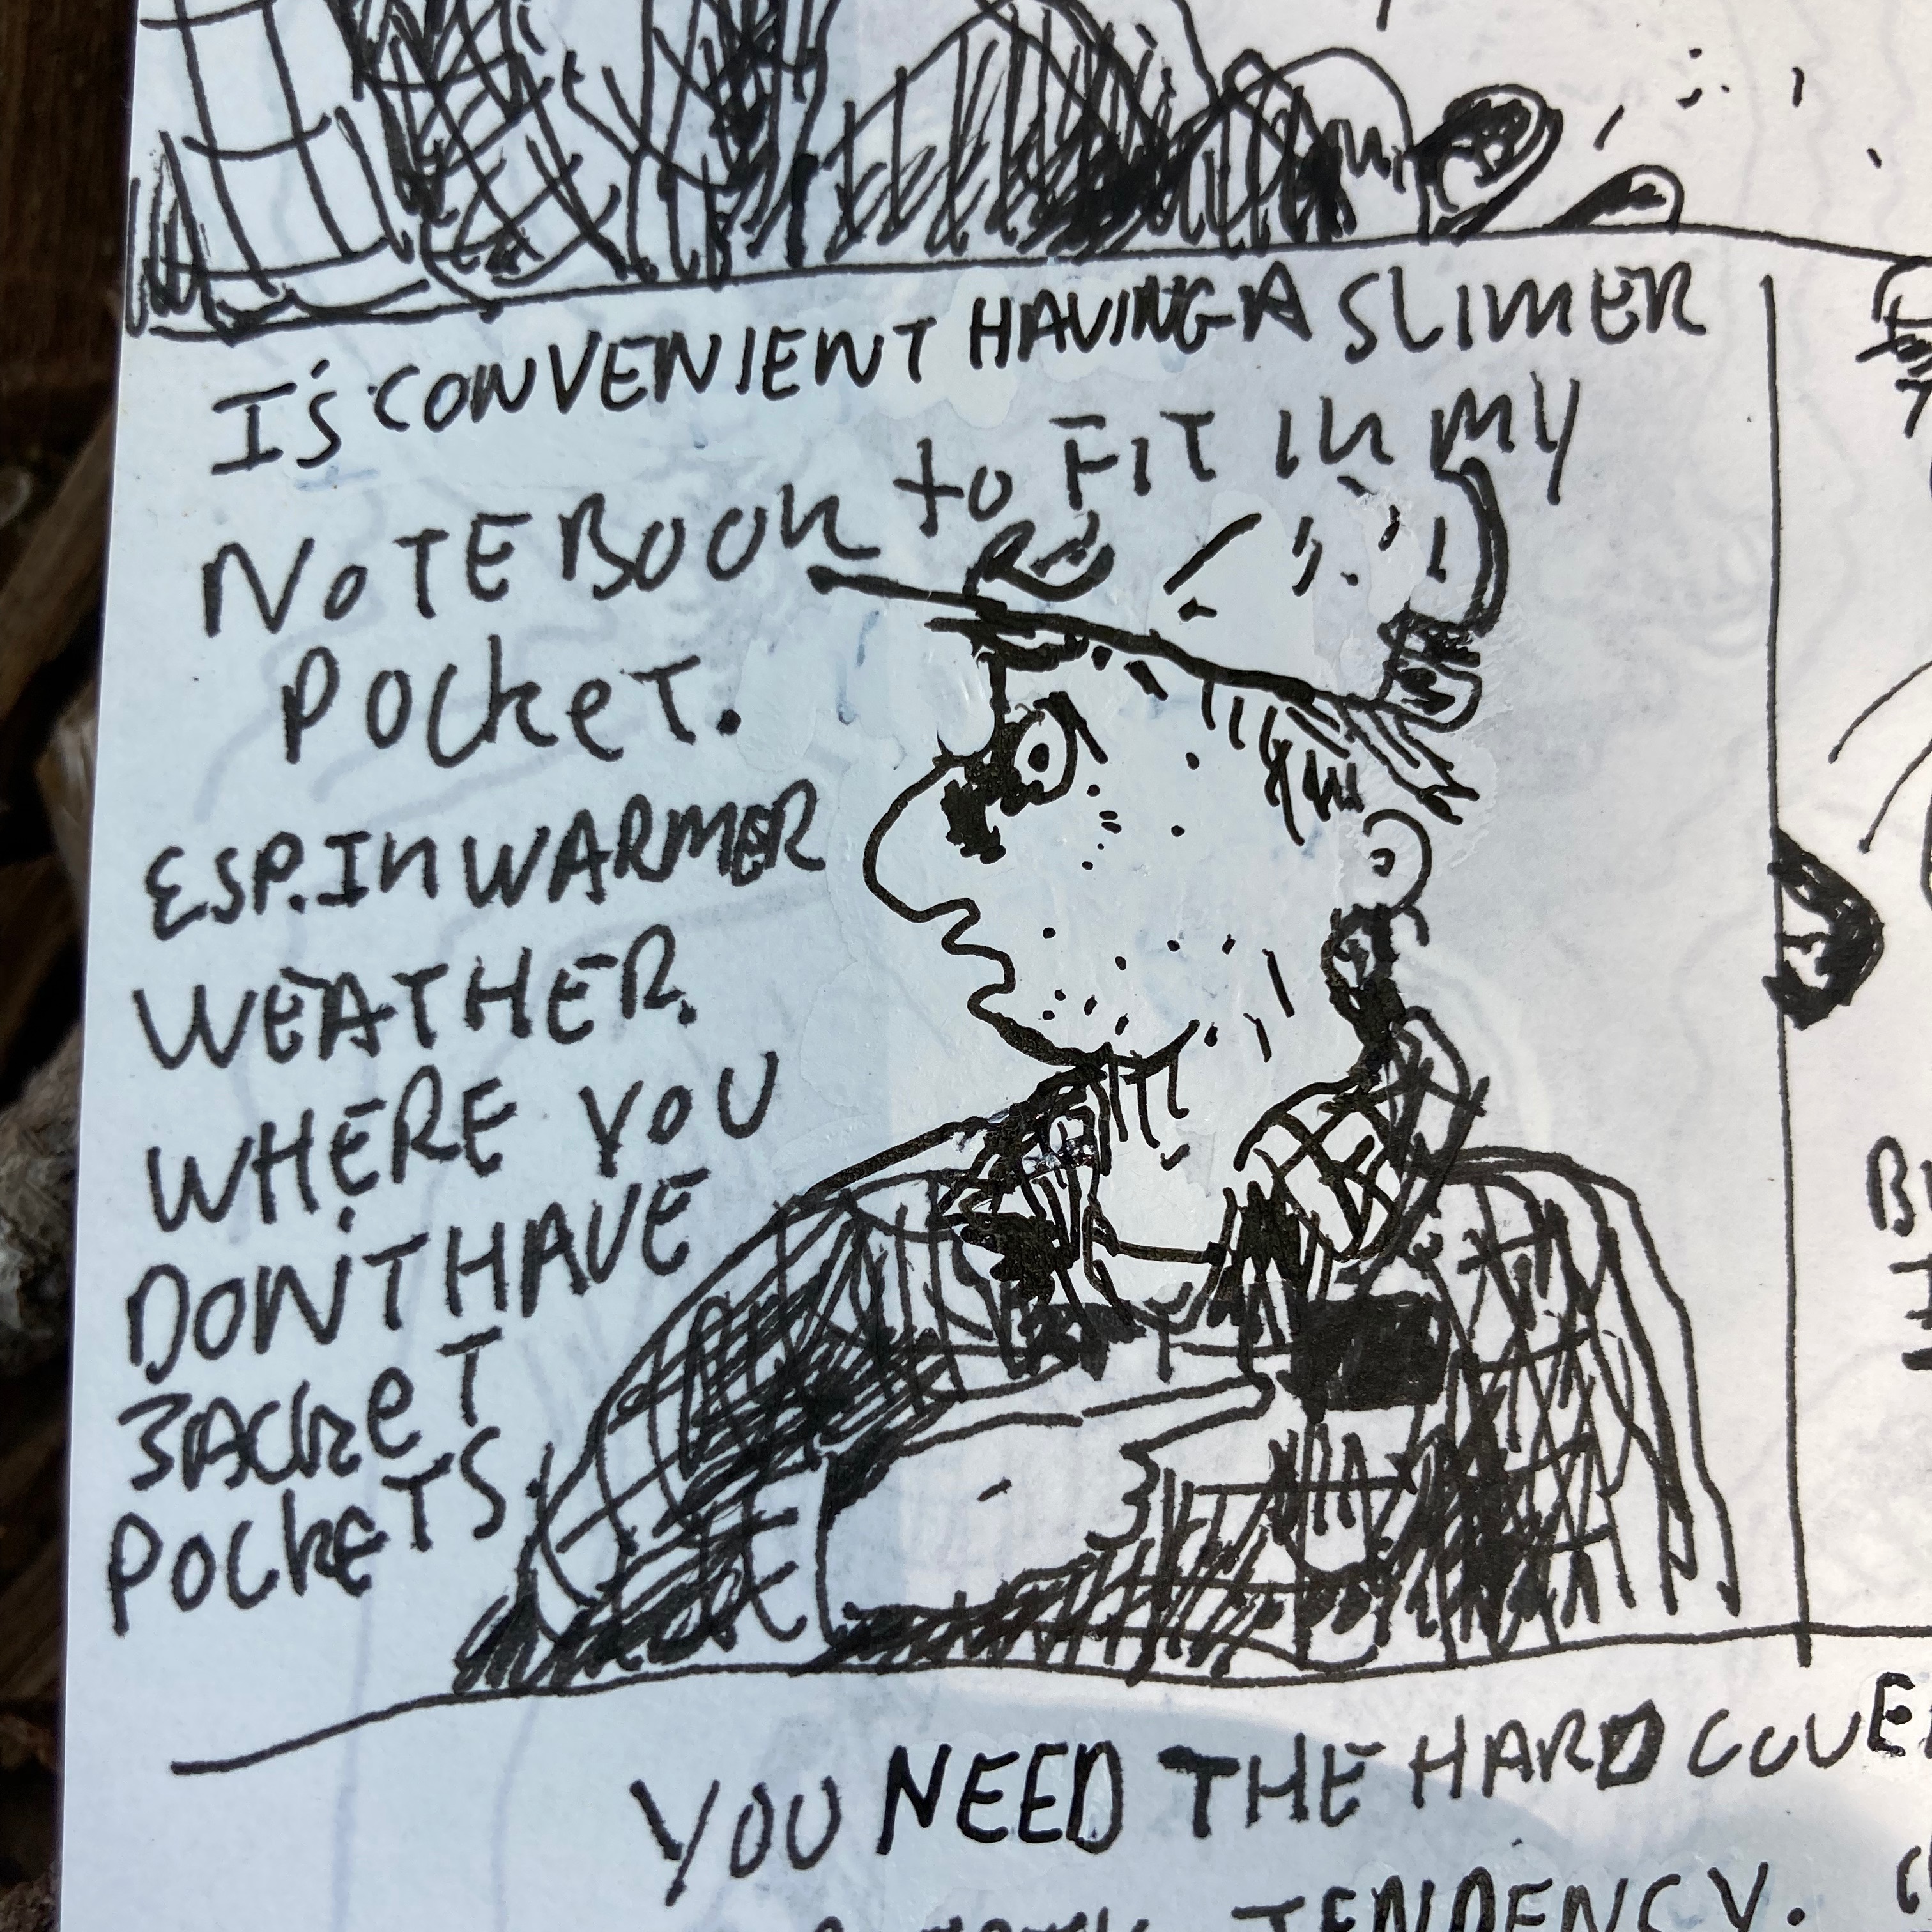 I'S CONVENIENT HAVING A SLIMER
NOTEBOOK to FIT IN MY
POCKET.
ESP. IN WARMER
WEATHER.
WHERE YOU
DON'T HAVE
JACKET
POCKETS.
YOU NEED THE HARD COVE
TENDENCY.